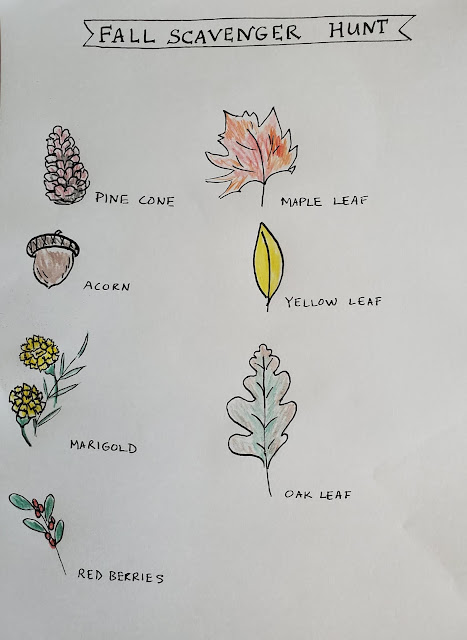 FALL SCAVENGER HUNT
PINE CONE
MAPLE LEAF
ACORN
YELLOW LEAF
MARIGOLD
OAK LEAF
RED BERRIES